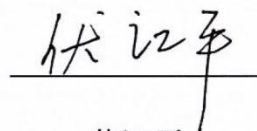 伏江平